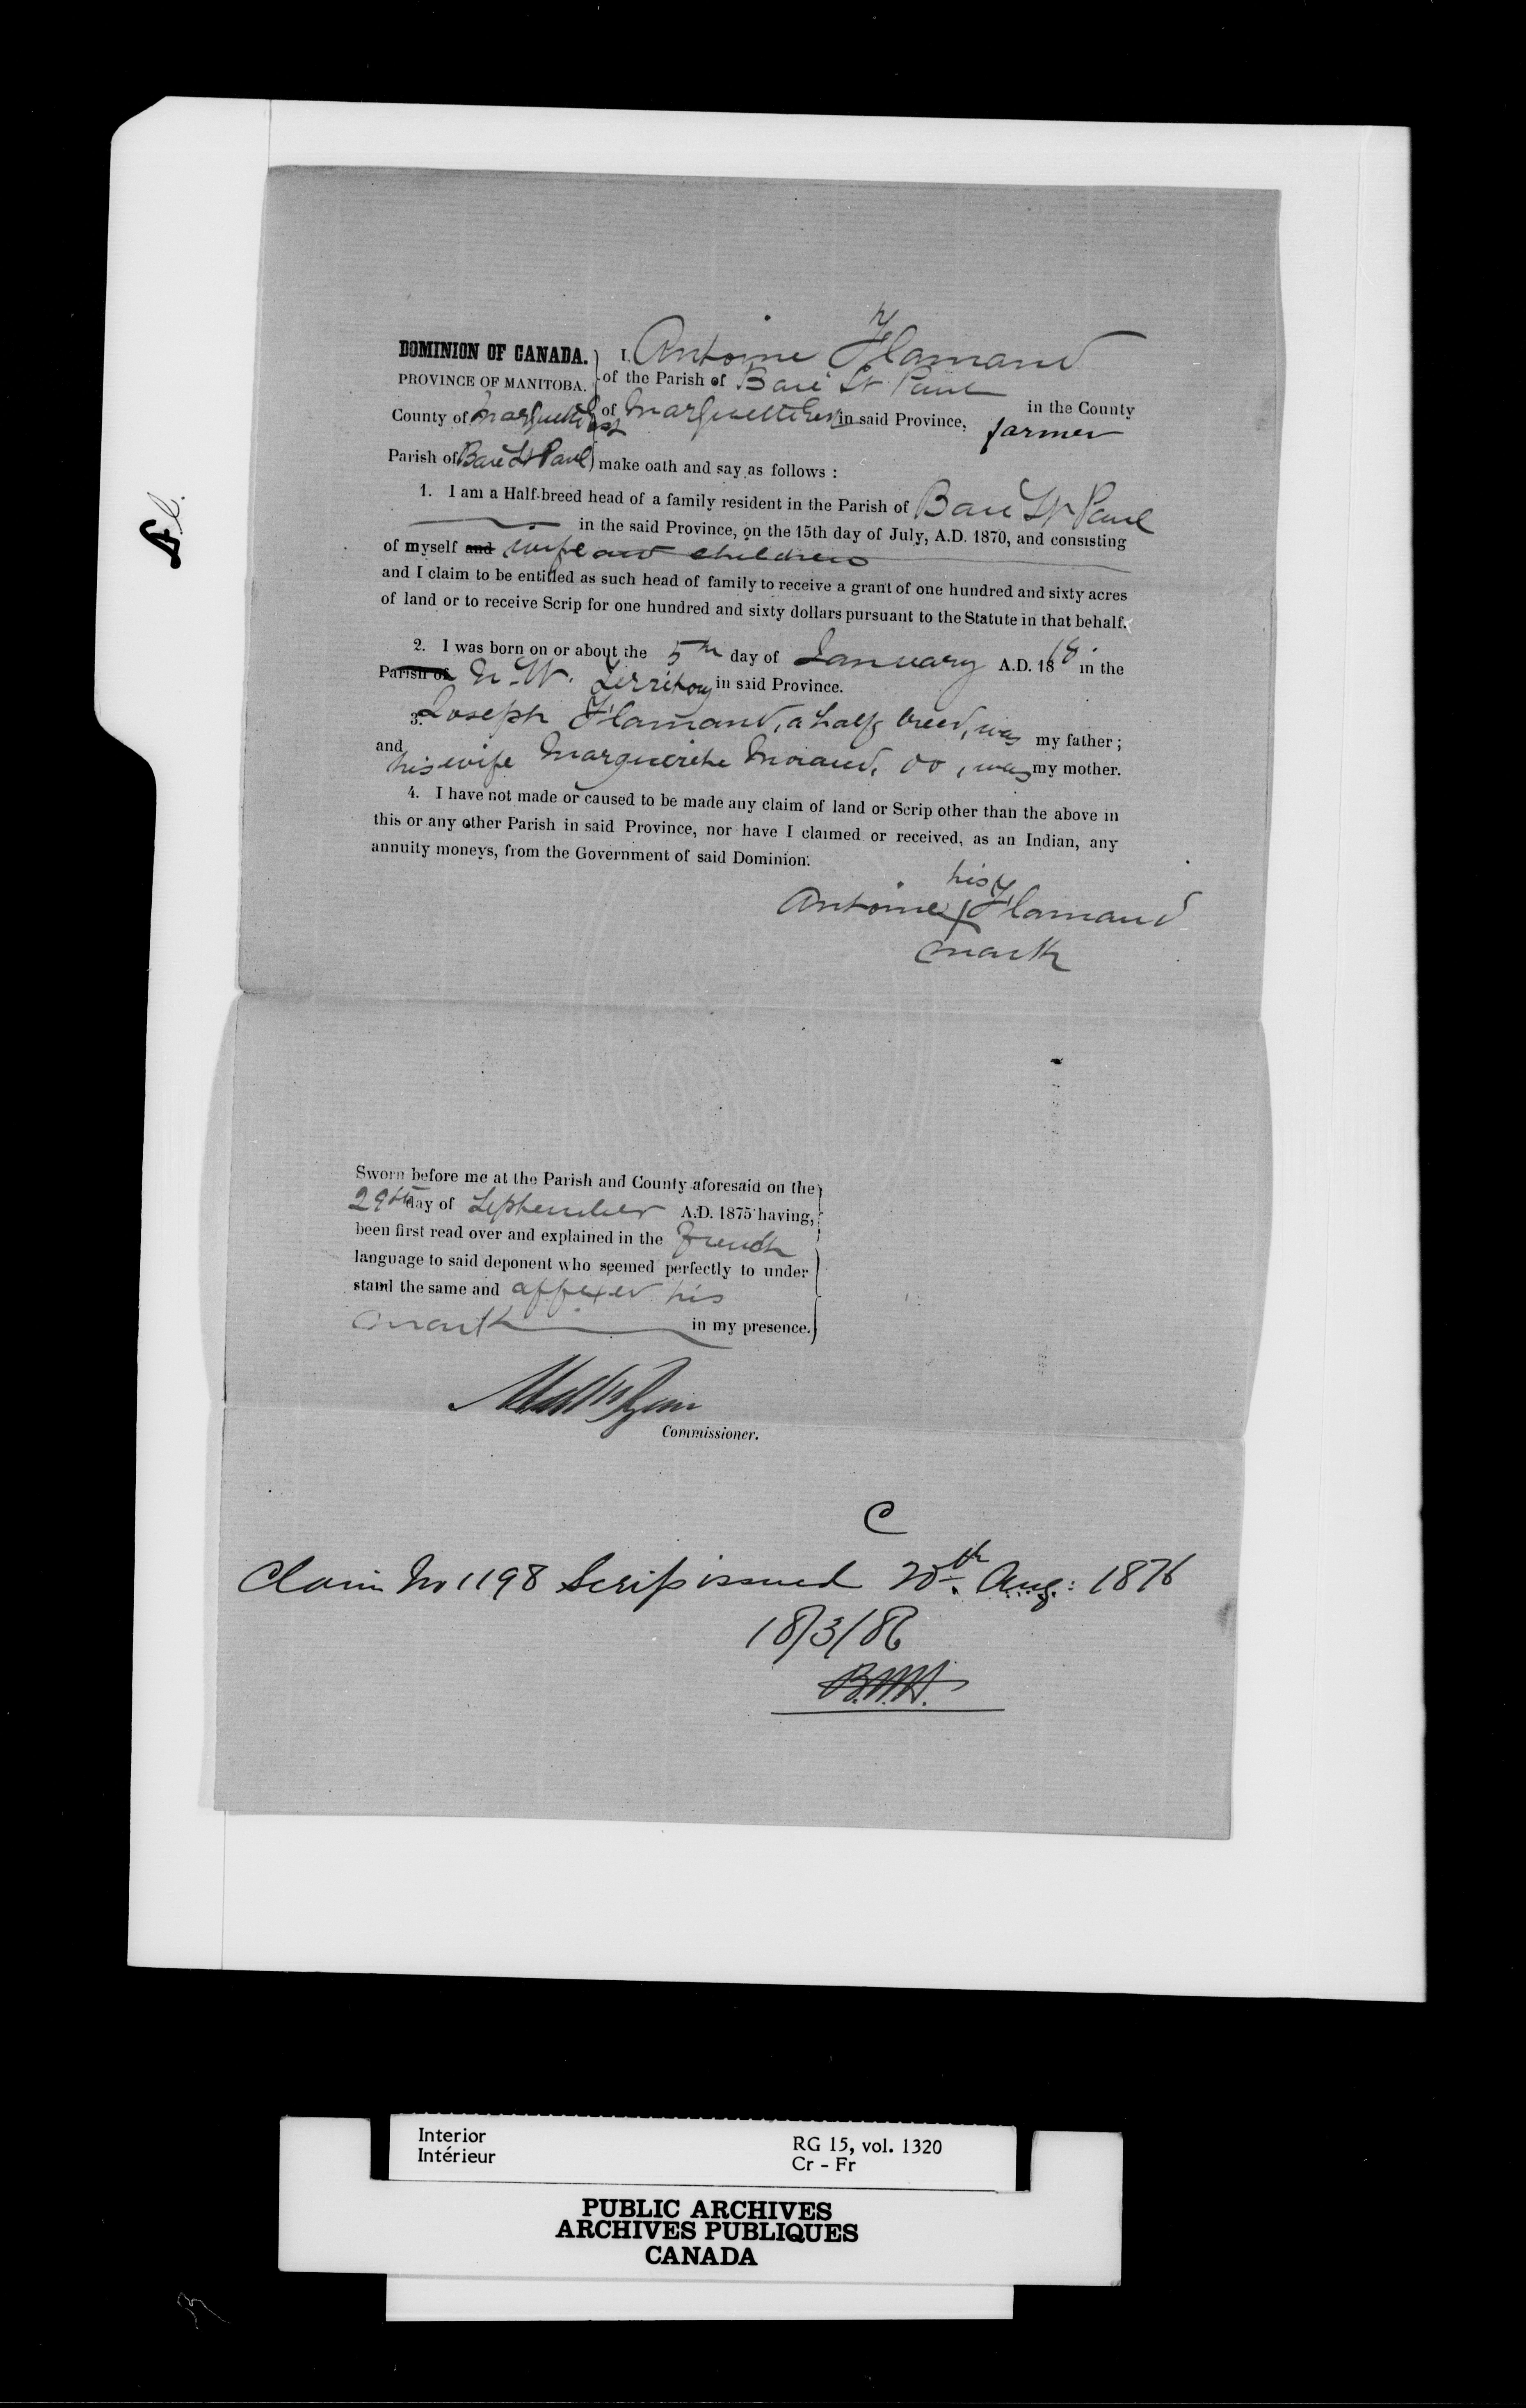 DOMINION OF CANADA.
PROVINCE OF MANITOBA.
County of Marquette East
Parish of Baie St Paul
I, Antoine Flamand
of the Parish of Baie St Paul in the County
of Marquette East in said Province, farmer
make oath and say as follows :
1. I am a Half-breed head of a family resident in the Parish of Baie St Paul
in the said Province, on the 15th day of July, A.D. 1870, and consisting
of myself and wife and children
and I claim to be entitled as such head of family to receive a grant of one hundred and sixty acres
of land or to receive Scrip for one hundred and sixty dollars pursuant to the Statute in that behalf.
2. I was born on or about the 5th day of January A.D. 1818 in the
Parish of N. W. Territory in said Province.
3. Joseph Flamand, a half breed, was my father ;
and his wife Marguerite Morand, do, was my mother.
4. I have not made or caused to be made any claim of land or Scrip other than the above in
this or any other Parish in said Province, nor have I claimed or received, as an Indian, any
annuity moneys, from the Government of said Dominion.
his
Antoine X Flamand
mark
Sworn before me at the Parish and County aforesaid on the
29th day of September A.D. 1875 having,
been first read over and explained in the French
language to said deponent who seemed perfectly to under
stand the same and affixed his
mark in my presence.
Commissioner.
C
Claim No 1198 Scrip issued 20th Aug: 1876
18/3/86
Interior
Intérieur
RG 15, vol. 1320
Cr - Fr
PUBLIC ARCHIVES
ARCHIVES PUBLIQUES
CANADA